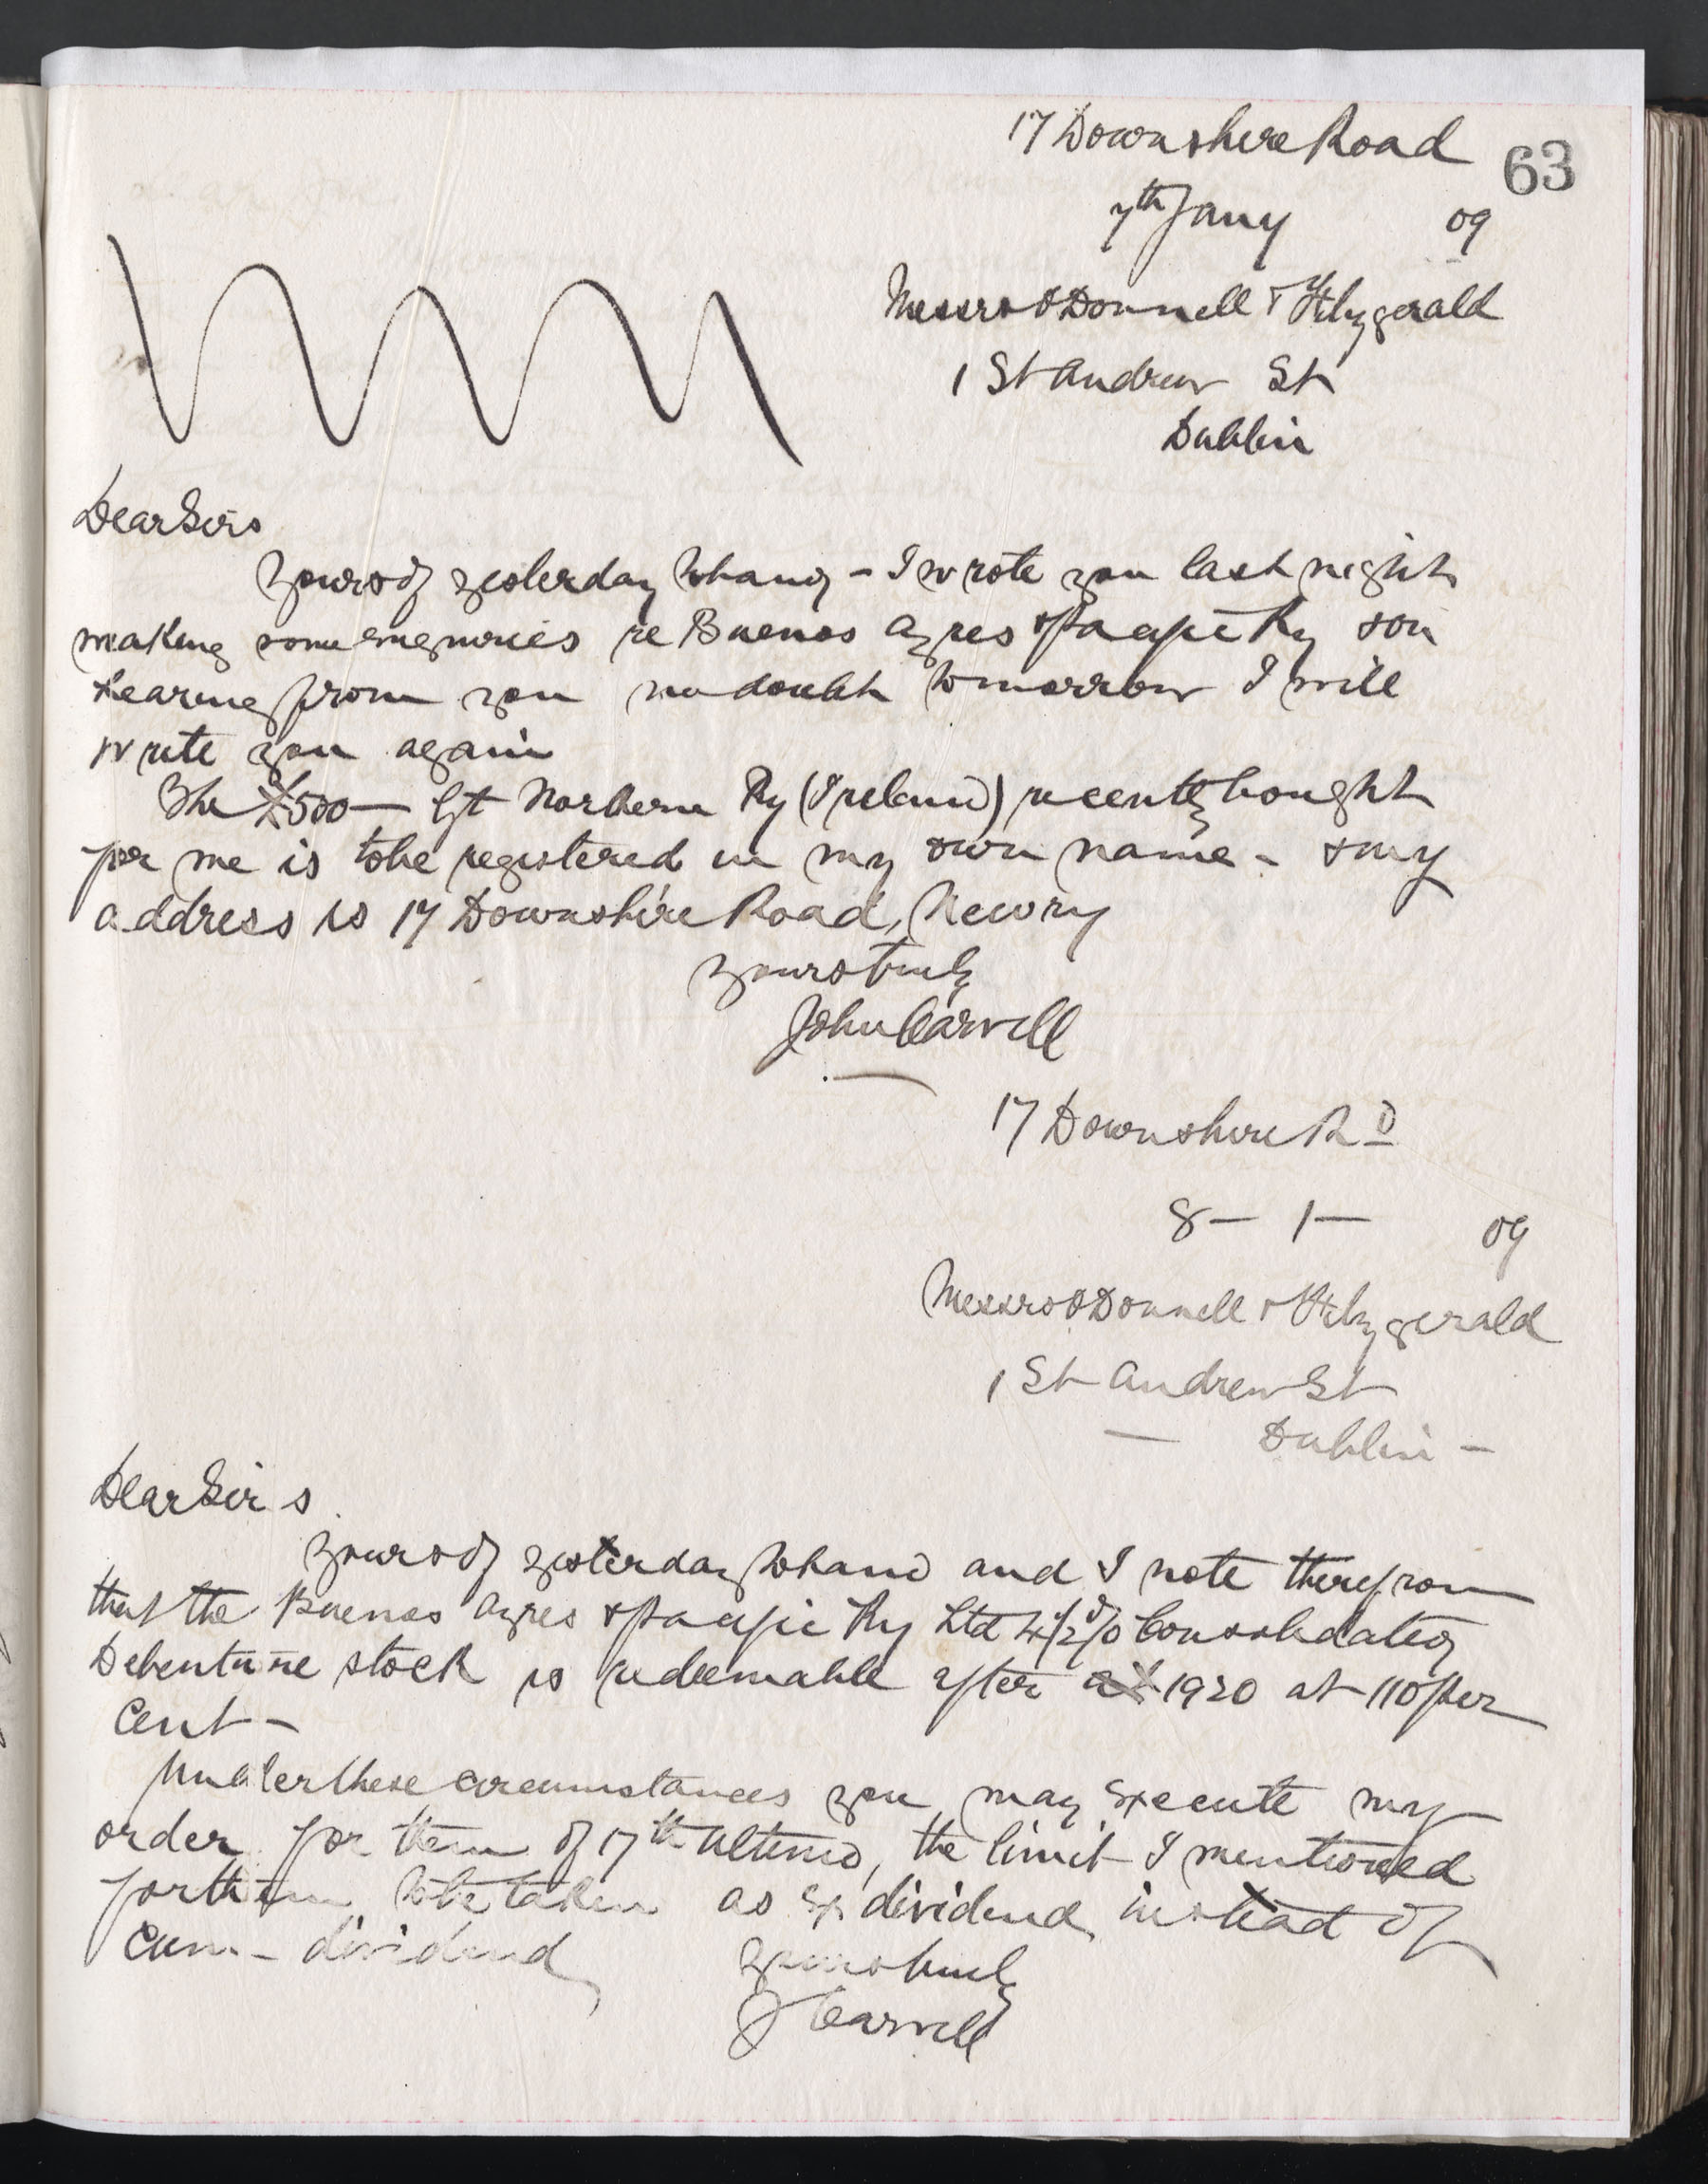 17 Downshire Road
63
7th Jany 09
Messrs O Donnell & Fitzgerald
1 St Andrew St
Dublin
Dear Sirs
Yours of yesterday to hand - I wrote you last night
making some enquiries re Buenos Ayres & Pacific Ry & on
hearing from you no doubt tomorrow I will
write you again
The £500 — Gt Northern Ry (Ireland) recently bought
for me is to be registered in my own name - & my
address is 17 Downshire Road, Newry
Yours truly
John Carvill
17 Downshire Rd
8 - 1 - 09
Messrs O Donnell & Fitzgerald
1 St Andrew St
— Dublin -
Dear Sirs
Yours of yesterday to hand and I note therefrom
that the Buenos Ayres & Pacific Ry Ltd 4½% Consolidated
Debenture stock is redeemable after 1920 at 110 per
Cent -
Under these circumstances you may execute my
order for them of 17th ultimo, the limit I mentioned
for them to be taken as Ex dividend instead of
Cum - dividend
Yours truly
J Carvill